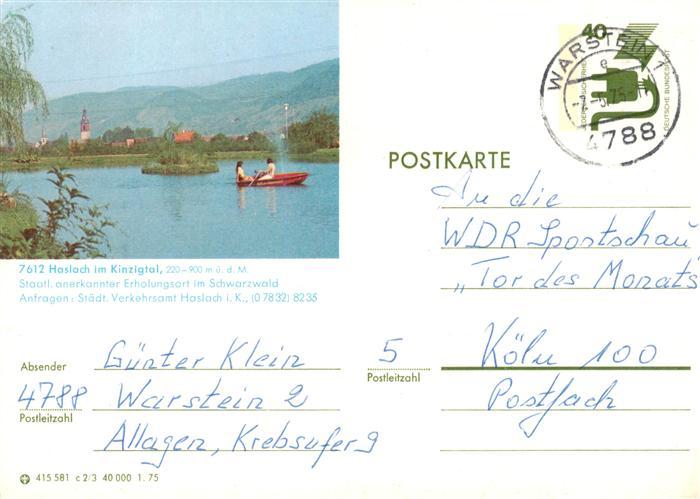 40
JEDERZEIT SICHERHEIT
DEUTSCHE BUNDESPOST
WARSTEIN 1
e
4788
POSTKARTE
An die
WDR Sportschau
„Tor des Monats
5 Köln 100
Postleitzahl
Postfach
7612 Haslach im Kinzigtal, 220–900 m ü. d. M.
Staatl. anerkannter Erholungsort im Schwarzwald
Anfragen: Städt. Verkehrsamt Haslach i. K., (0 78 32) 82 35
Absender Günter Klein
4788 Warstein 2
Postleitzahl
Allagen, Krebsufer 9
415 581 c 2/3 40 000 1. 75